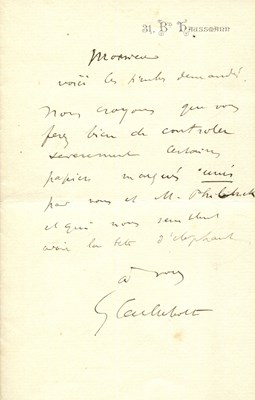 31, Bd Haussmann
Monsieur
voici les timbres demandés.
Nous croyons que vous
ferez bien de controler
severement certains
papiers marqués unis
par vous et M. Philbrick
et qui nous semblent
avoir la tête d'éléphant
à vous
G Caillebotte